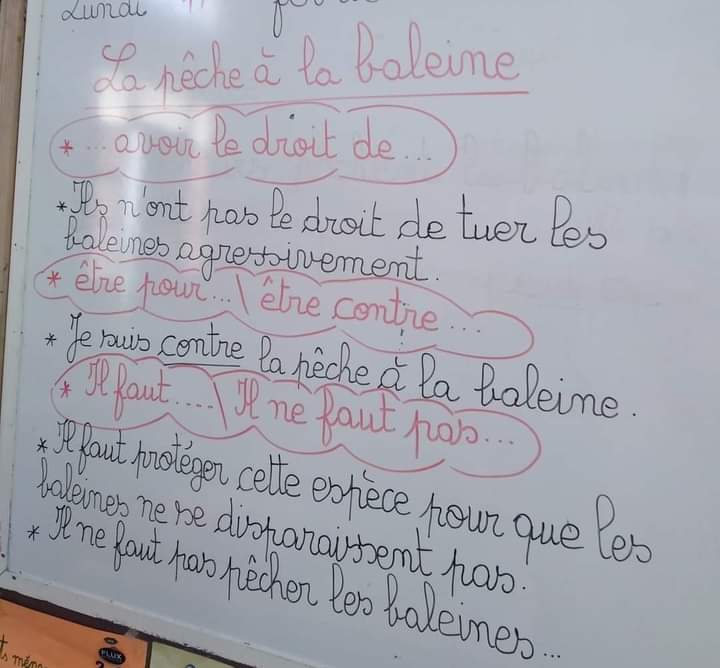 Lundi
La pêche à la baleine
* ... avoir le droit de ...
* Ils n'ont pas le droit de tuer les
baleines agressivement.
* être pour ... \ être contre ...
* Je suis contre la pêche à la baleine.
* Il faut .... \ Il ne faut pas ...
* Il faut protéger cette espèce pour que les
baleines ne se disparaissent pas.
* Il ne faut pas pêcher les baleines ...
FLUX